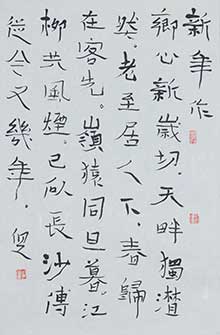 新年作
鄉心新歲切，天畔獨潸
然。老至居人下，春歸
在客先。嶺猿同旦暮，江
柳共風煙。已似長沙傅，
從今又幾年。